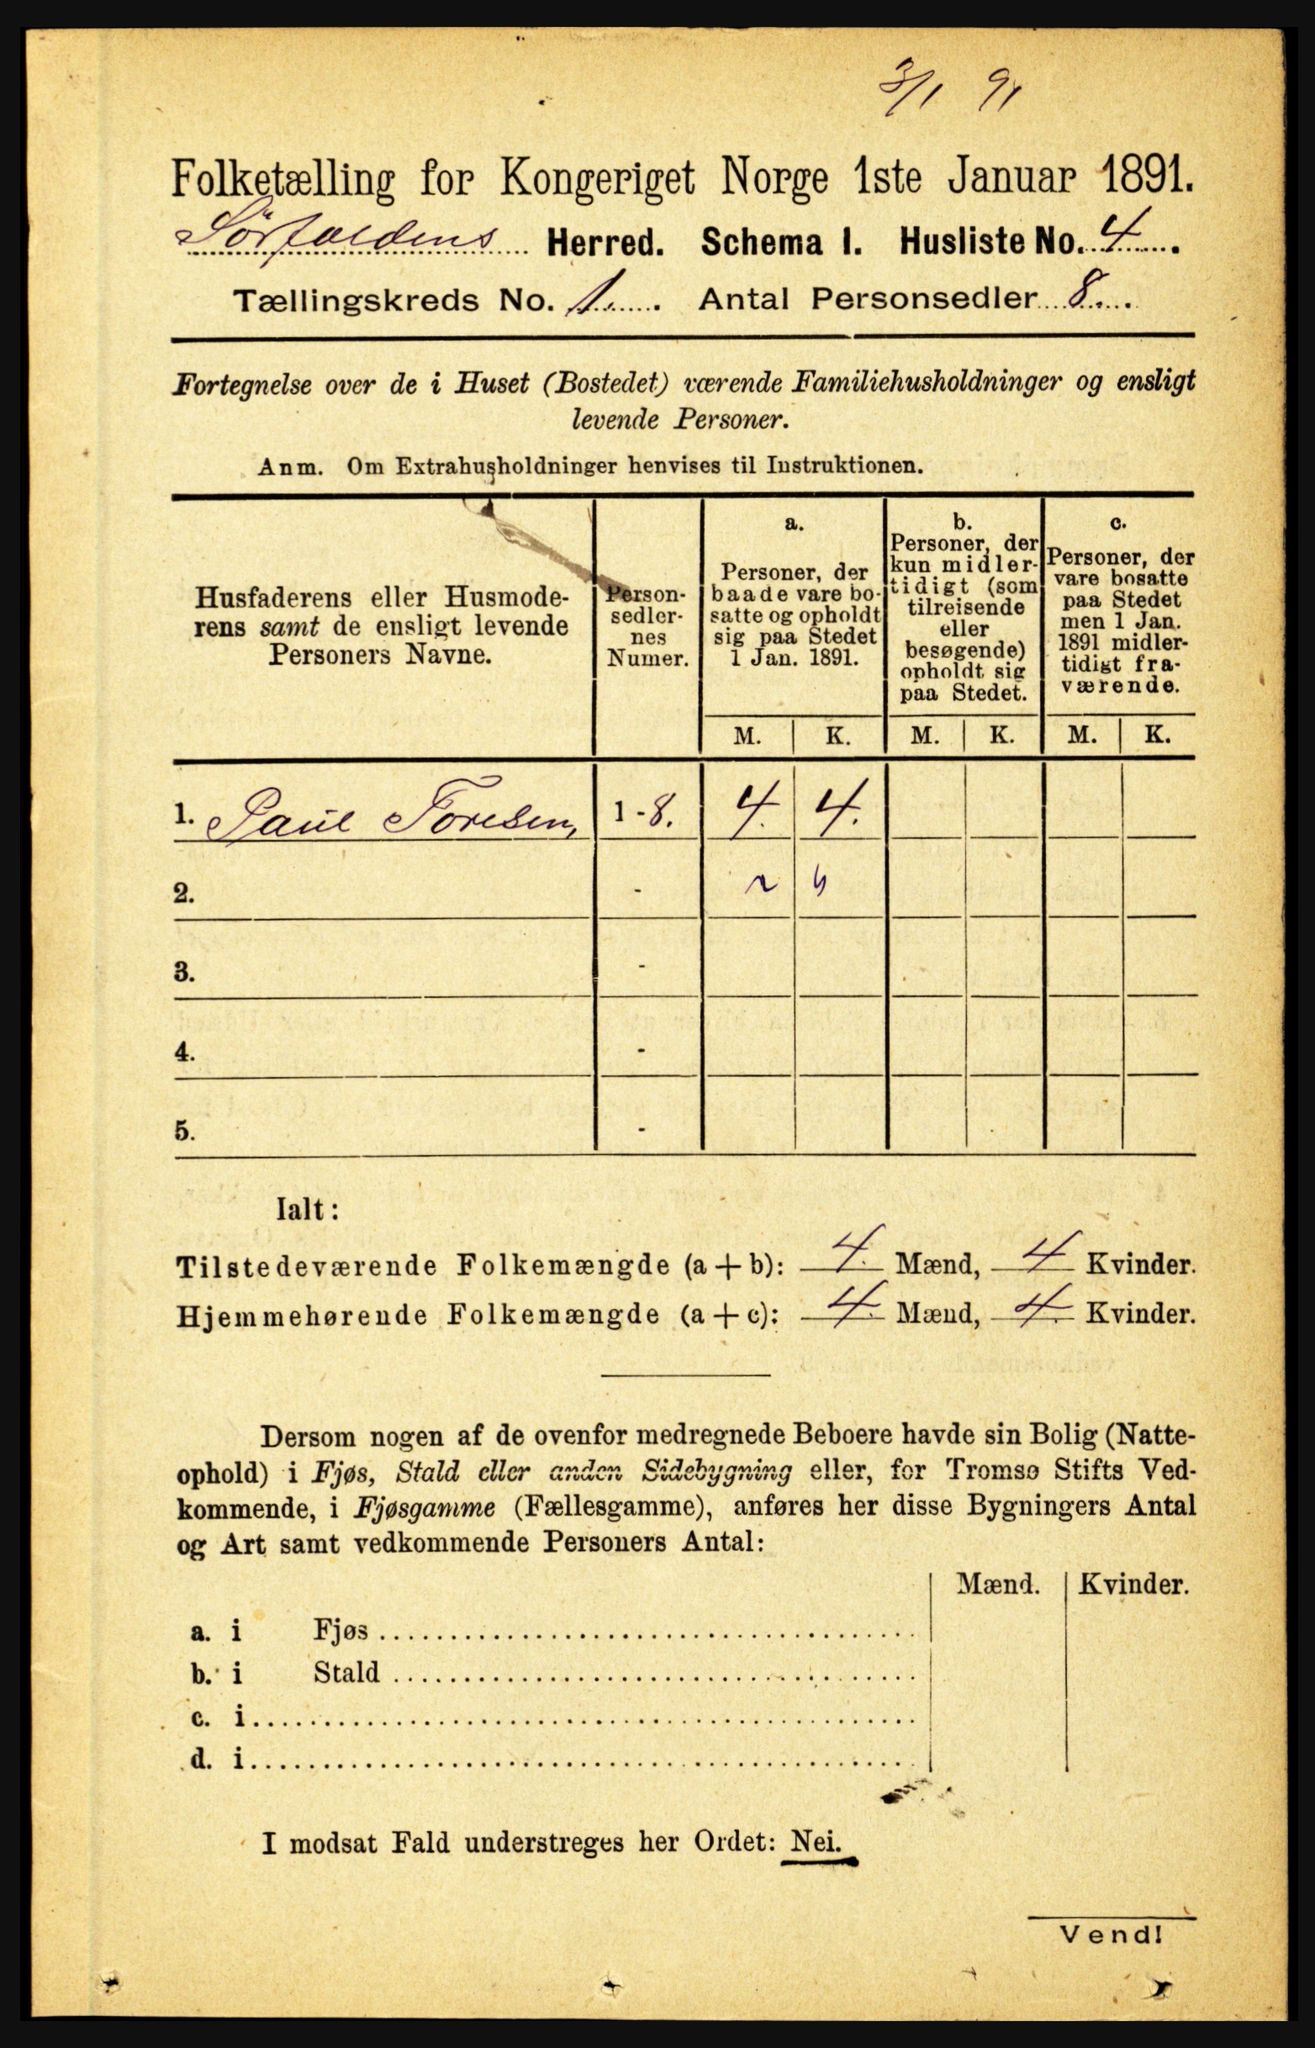 3/1 91
Folketælling for Kongeriget Norge 1ste Januar 1891.
Sørfoldens Herred. Schema I. Husliste No. 4.
Tællingskreds No. 1. Antal Personsedler 8.
Fortegnelse over de i Huset (Bostedet) værende Familiehusholdninger og ensligt
levende Personer.
Anm. Om Extrahusholdninger henvises til Instruktionen.
Husfaderens eller Husmode-
rens samt de ensligt levende
Personers Navne.
Person-
sedler-
nes
Numer.
a.
Personer, der
baade vare bo-
satte og opholdt
sig paa Stedet
1 Jan. 1891.
b.
Personer, der
kun midler-
tidigt (som
tilreisende
eller
besøgende)
opholdt sig
paa Stedet.
c.
Personer, der
vare bosatte
paa Stedet
men 1 Jan.
1891 midler-
tidigt fra-
værende.
M. K. M. K. M. K.
1. Paul Toresen, 1 - 8. 4. 4.
2. -
3. -
4. -
5. -
Ialt:
Tilstedeværende Folkemængde (a + b): 4. Mænd, 4 Kvinder.
Hjemmehørende Folkemængde (a + c): 4. Mænd, 4. Kvinder.
Dersom nogen af de ovenfor medregnede Beboere havde sin Bolig (Natte-
ophold) i Fjøs, Stald eller anden Sidebygning eller, for Tromsø Stifts Ved-
kommende, i Fjøsgamme (Fællesgamme), anføres her disse Bygningers Antal
og Art samt vedkommende Personers Antal:
Mænd. Kvinder.
a. i Fjøs
b. i Stald
c. i
d. i
I modsat Fald understreges her Ordet: Nei.
Vend!